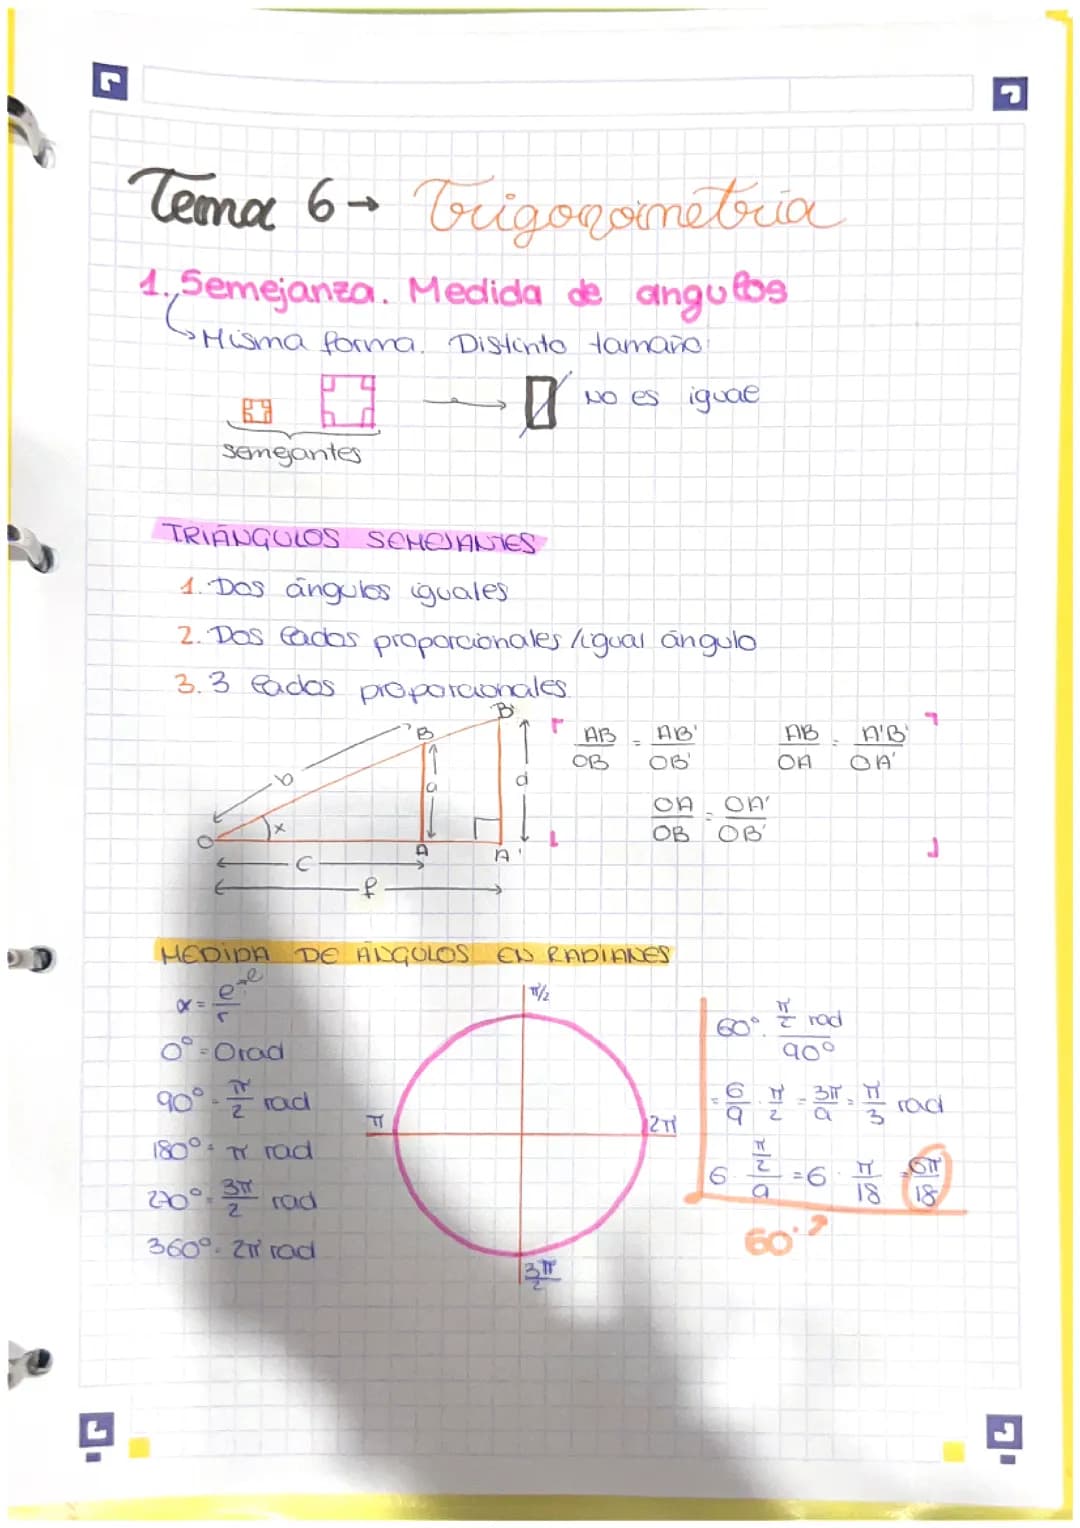 Tema 6→ Trigonometria
1. Semejanza. Medida de angulos
↳ Misma forma. Distinto tamaño
NO es igual
semejantes
TRIÁNGULOS SEMEJANTES
1. Dos ángulos iguales
2. Dos lados proporcionales / igual ángulo
3. 3 lados proporcionales
B B'
b a d
O x A A'
c
f
AB/OB = AB'/OB' AB/OA = A'B'/OA'
OA/OB = OA'/OB'
MEDIDA DE ÁNGULOS EN RADIANES
α = e/r
0° = 0 rad
90° = π/2 rad
180° = π rad
270° = 3π/2 rad
360° = 2π rad
π/2
π 2π
3π/2
60° · π/2 rad / 90°
= 6/9 · π/2 = 3π/9 = π/3 rad
6 · π/2 / 9 = 6 · π/18 = 6π/18
60°